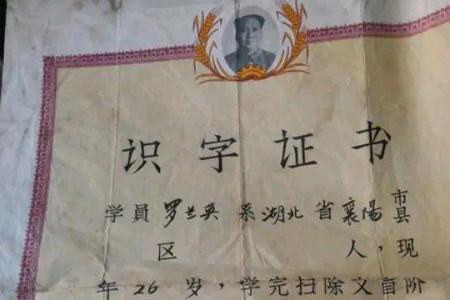 识字证书
学员罗兰英系湖北省襄阳市县
区人，现
年26岁，学完扫除文盲阶